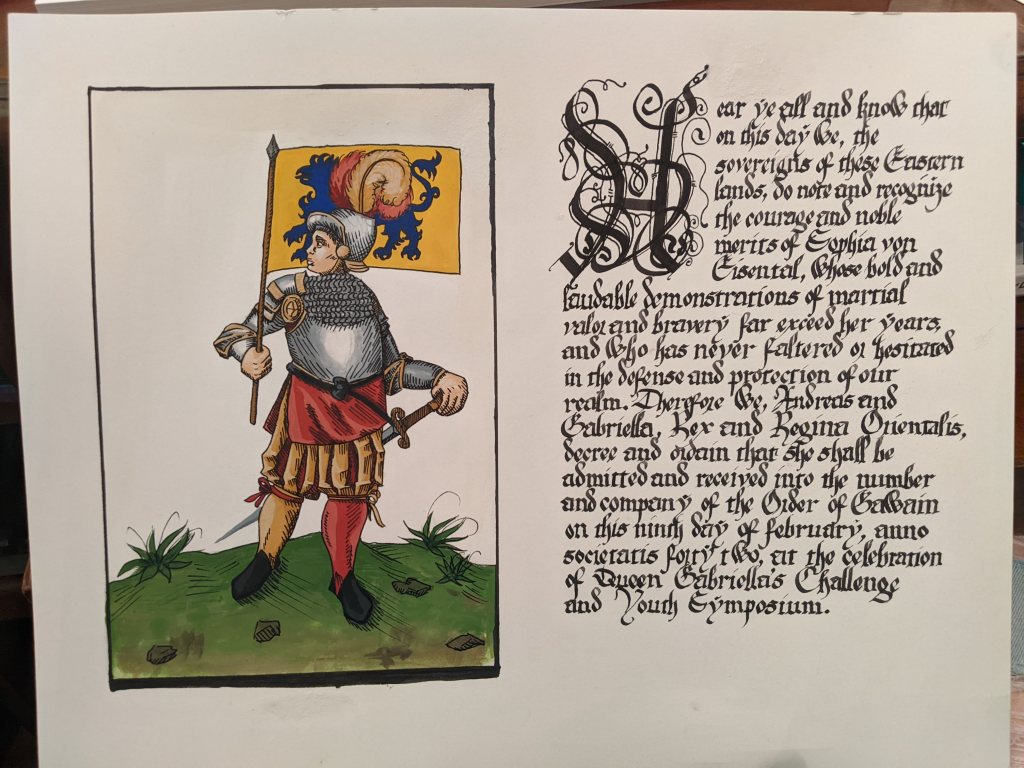 Hear ye all and know that
on this day We, the
sovereigns of these Eastern
lands, do note and recognize
the courage and noble
merits of Sophia von
Eisental, whose bold and
laudable demonstrations of martial
valor and bravery far exceed her years,
and who has never faltered or hesitated
in the defense and protection of our
realm. Therefore We, Andreas and
Gabriella, Rex and Regina Orientalis,
decree and ordain that She shall be
admitted and received into the number
and company of the Order of Gawain
on this ninth day of february, anno
societatis forty two, at the celebration
of Queen Gabriella's Challenge
and Youth Symposium.